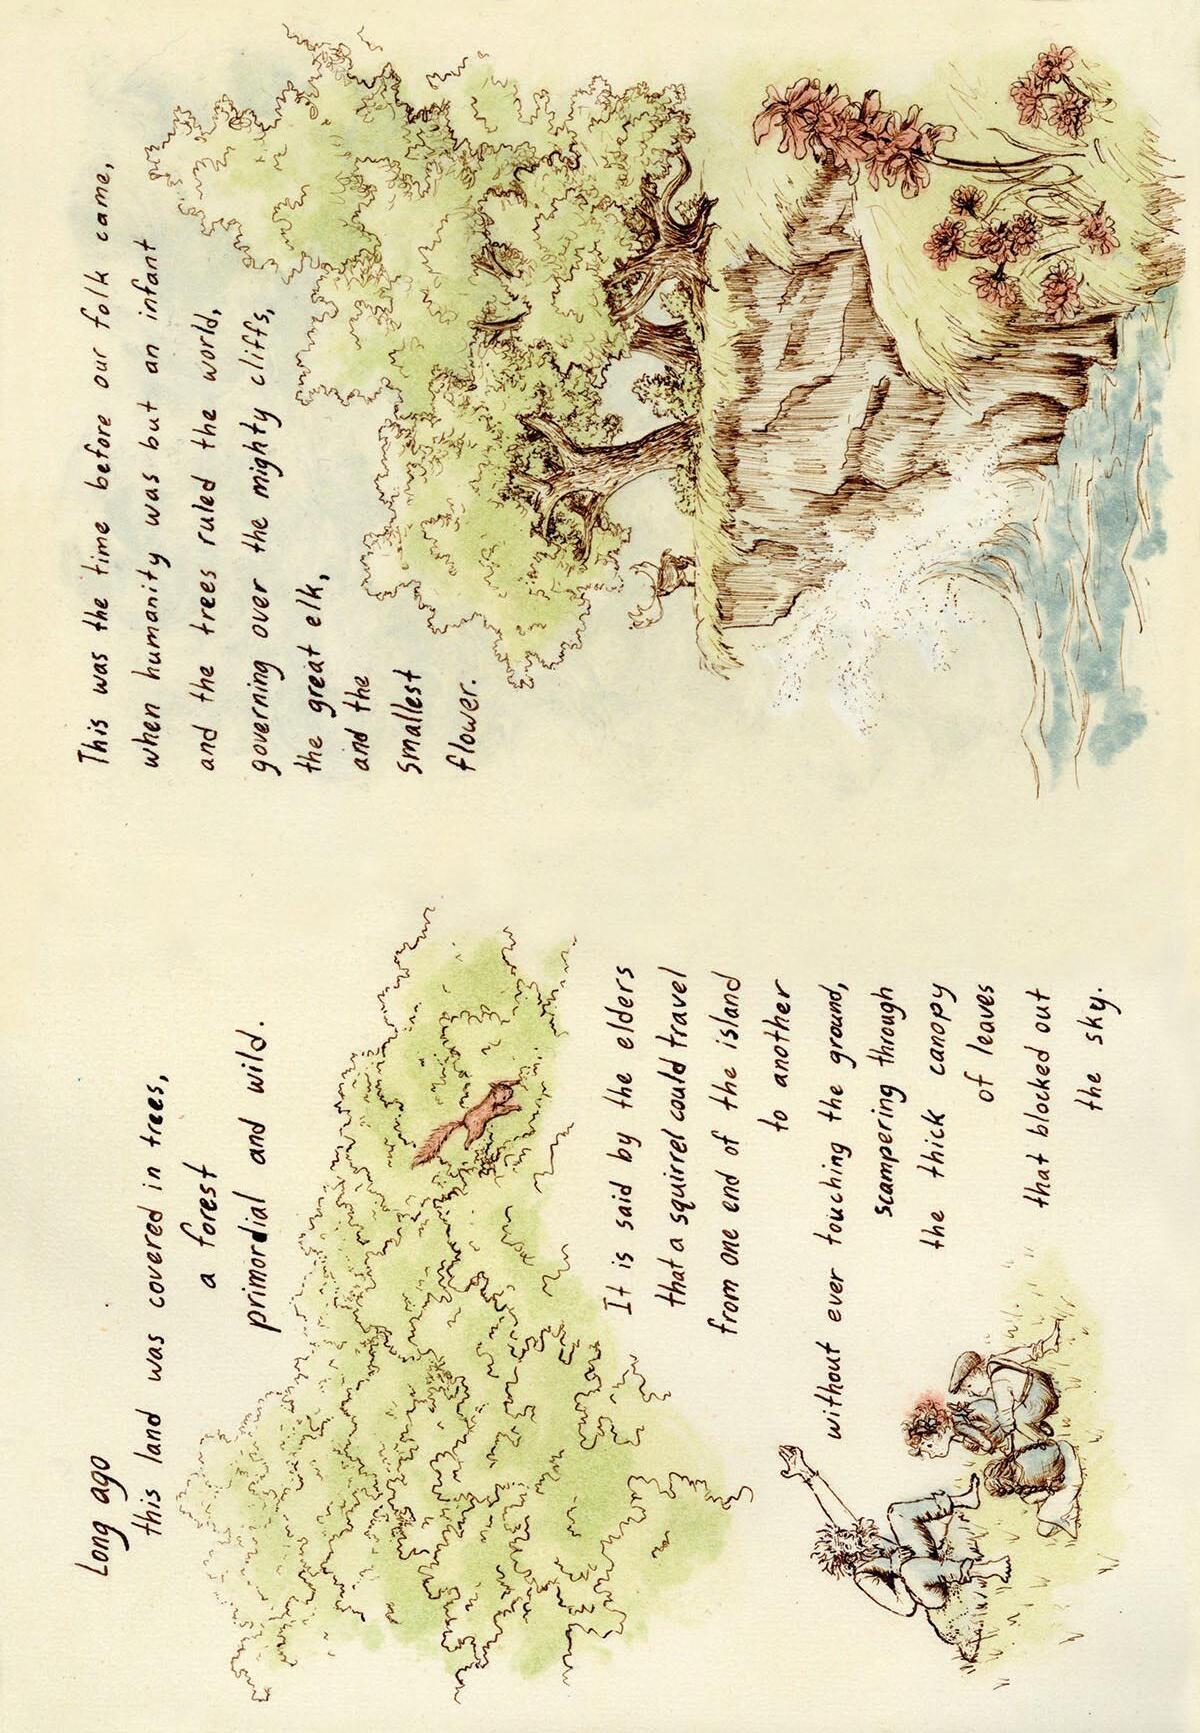 Long ago
this land was covered in trees,
a forest
primordial and wild.
It is said by the elders
that a squirrel could travel
from one end of the island
to another
without ever touching the ground,
scampering through
the thick canopy
of leaves
that blocked out
the sky.
This was the time before our folk came,
when humanity was but an infant
and the trees ruled the world,
governing over the mighty cliffs,
the great elk,
and the
smallest
flower.